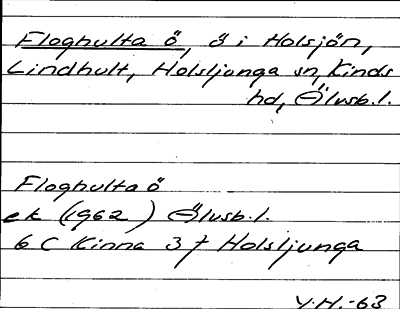 Floghulta ö, ö i Holsjön,
Lindhult, Holsljunga sn, Kinds
hd, Älvsb.l.
Floghulta ö
ek (1962) Älvsb.l.
6 C Kinna 3 f Holsljunga
V.H.-63